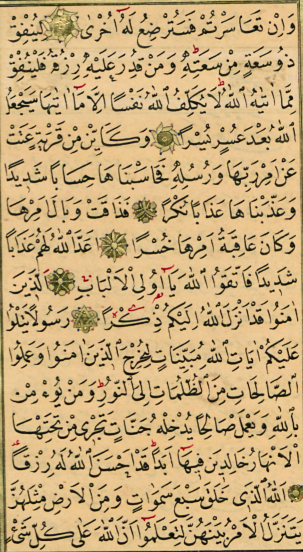 وَاِنْ تَعَاسَرْتُمْ فَسَتُرْضِعُ لَهُ اُخْرٰى لِيُنْفِقْ
ذُو سَعَةٍ مِنْ سَعَتِهِ وَمَنْ قُدِرَ عَلَيْهِ رِزْقُهُ فَلْيُنْفِقْ
مِمَّا اٰتٰيهُ اللّٰهُ لَا يُكَلِّفُ اللّٰهُ نَفْسًا اِلَّا مَا اٰتٰيهَا سَيَجْعَلُ
اللّٰهُ بَعْدَ عُسْرٍ يُسْرًا وَكَاَيِّنْ مِنْ قَرْيَةٍ عَتَتْ
عَنْ اَمْرِ رَبِّهَا وَرُسُلِهِ فَحَاسَبْنَاهَا حِسَابًا شَدِيدًا
وَعَذَّبْنَاهَا عَذَابًا نُكْرًا فَذَاقَتْ وَبَالَ اَمْرِهَا
وَكَانَ عَاقِبَةُ اَمْرِهَا خُسْرًا اَعَدَّ اللّٰهُ لَهُمْ عَذَابًا
شَدِيدًا فَاتَّقُوا اللّٰهَ يَا اُولِى الْاَلْبَابِ اَلَّذِينَ
اٰمَنُوا قَدْ اَنْزَلَ اللّٰهُ اِلَيْكُمْ ذِكْرًا رَسُولًا يَتْلُوا
عَلَيْكُمْ اٰيَاتِ اللّٰهِ مُبَيِّنَاتٍ لِيُخْرِجَ الَّذِينَ اٰمَنُوا وَعَمِلُوا
الصَّالِحَاتِ مِنَ الظُّلُمَاتِ اِلَى النُّورِ وَمَنْ يُؤْمِنْ
بِاللّٰهِ وَيَعْمَلْ صَالِحًا يُدْخِلْهُ جَنَّاتٍ تَجْرِى مِنْ تَحْتِهَا
الْاَنْهَارُ خَالِدِينَ فِيهَا اَبَدًا قَدْ اَحْسَنَ اللّٰهُ لَهُ رِزْقًا
اَللّٰهُ الَّذِى خَلَقَ سَبْعَ سَمٰوَاتٍ وَمِنَ الْاَرْضِ مِثْلَهُنَّ
يَتَنَزَّلُ الْاَمْرُ بَيْنَهُنَّ لِتَعْلَمُوا اَنَّ اللّٰهَ عَلٰى كُلِّ شَىْءٍ